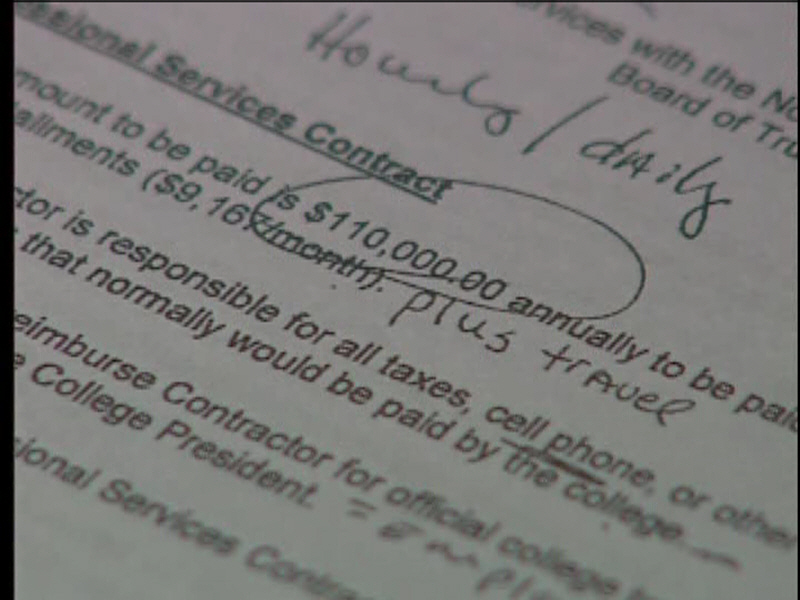 rvices with the No
Board of Tru
Hourly / daily
ssional Services Contract
mount to be paid is $110,000.00 annually to be paid
allments ($9,167/month).
plus travel
ctor is responsible for all taxes, cell phone, or other
that normally would be paid by the college.
eimburse Contractor for official college
e College President.
sional Services Contra